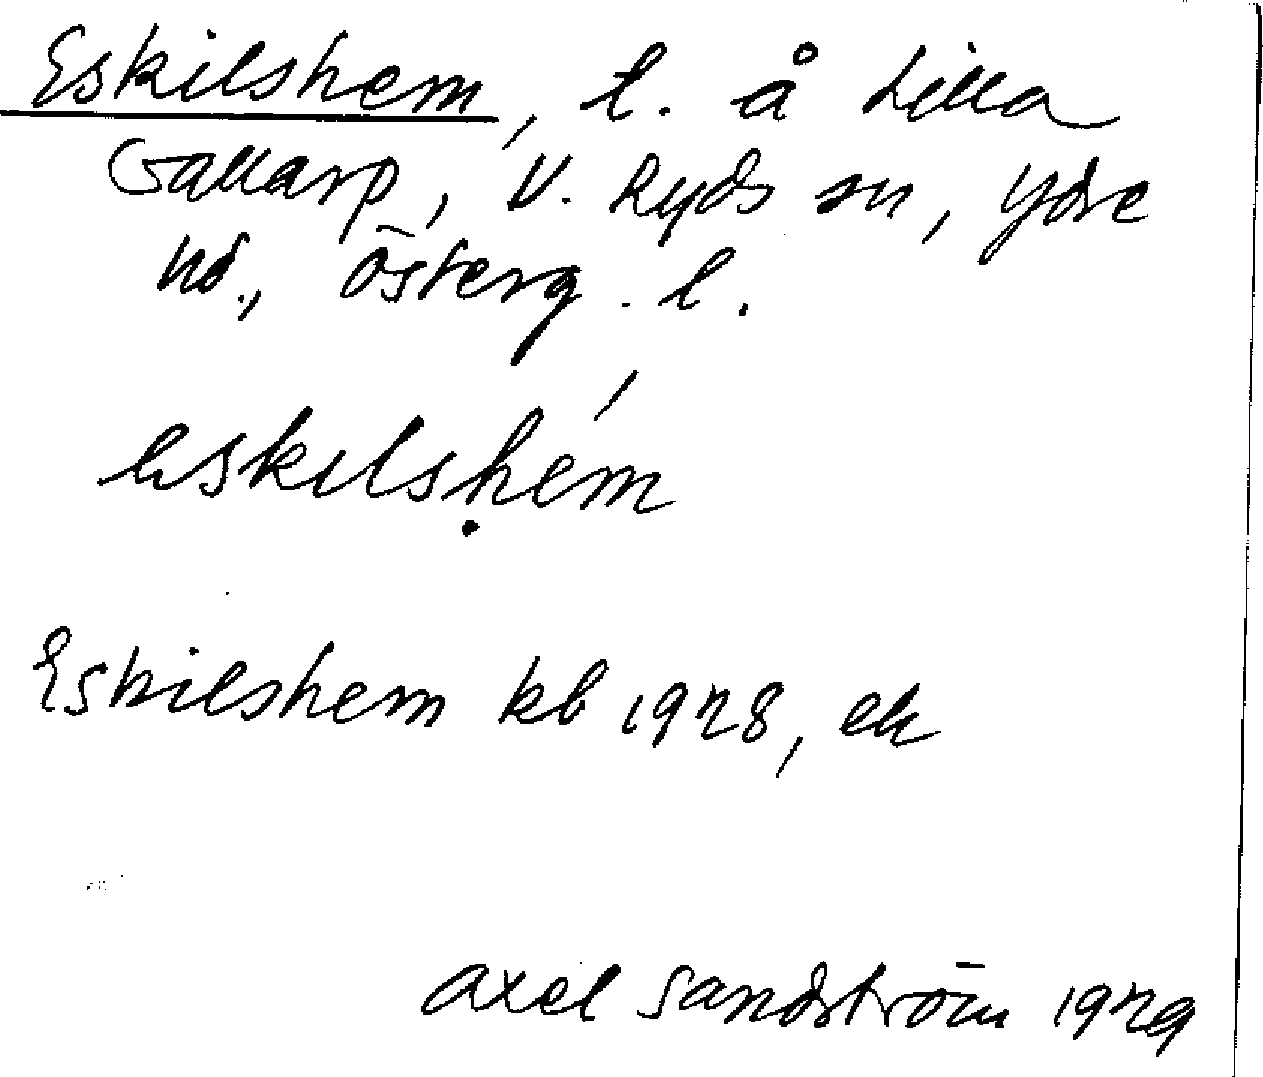 Eskilshem, l. å Lilla
Gallarp, V. Ryds sn, Ydre
hd., Österg. l.
eskilshem
Eskilshem kb 1928, ek
Axel Sandström 1929